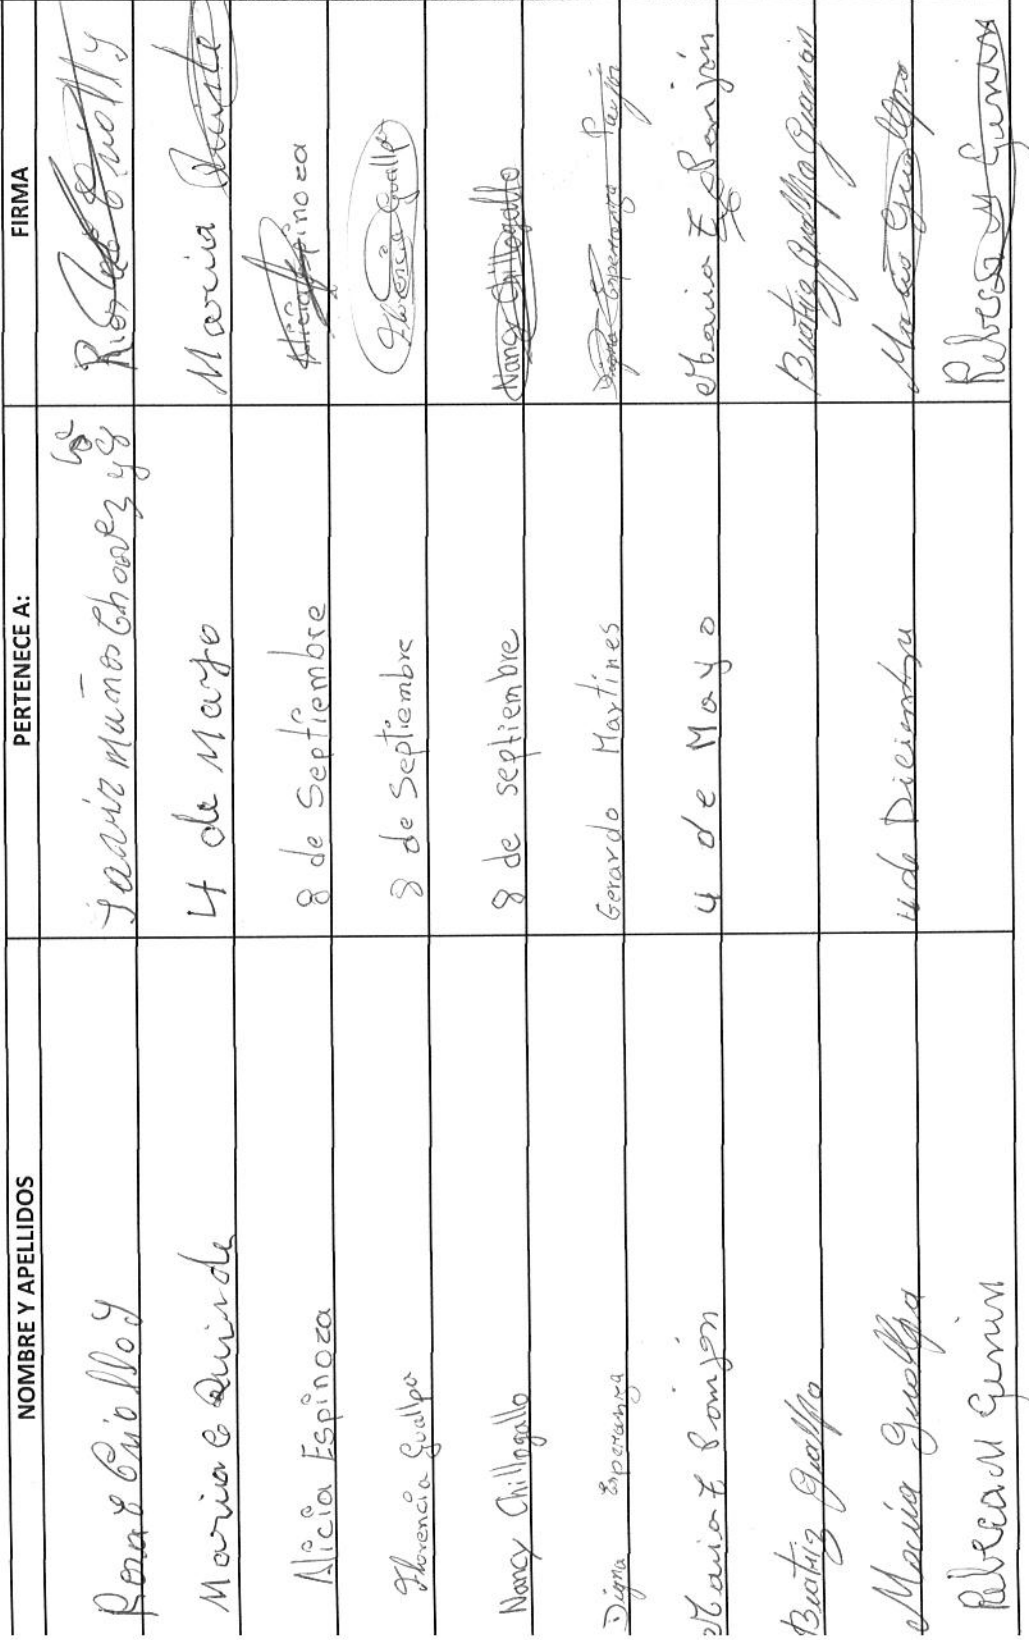 NOMBRE Y APELLIDOS PERTENECE A: FIRMA
Rosa E Criollo Y Javier Muñoz Chavez y 8 Rosa E Criollo Y
Maria C Quinde 4 de Mayo Maria Quinde
Alicia Espinoza 8 de Septiembre Alicia Espinoza
Florencia Guallpa 8 de Septiembre Florencia Guallpa
Nancy Chillogallo 8 de septiembre Nancy Chillogallo
Digna Esperanza Gerardo Martines Digna Esperanza
Maria E 4 de Mayo Maria E
Beatriz Guallpa Beatriz Guallpa
Maria Guallpa 4 de Diciembre Maria Guallpa
Rebeca M Rebeca M